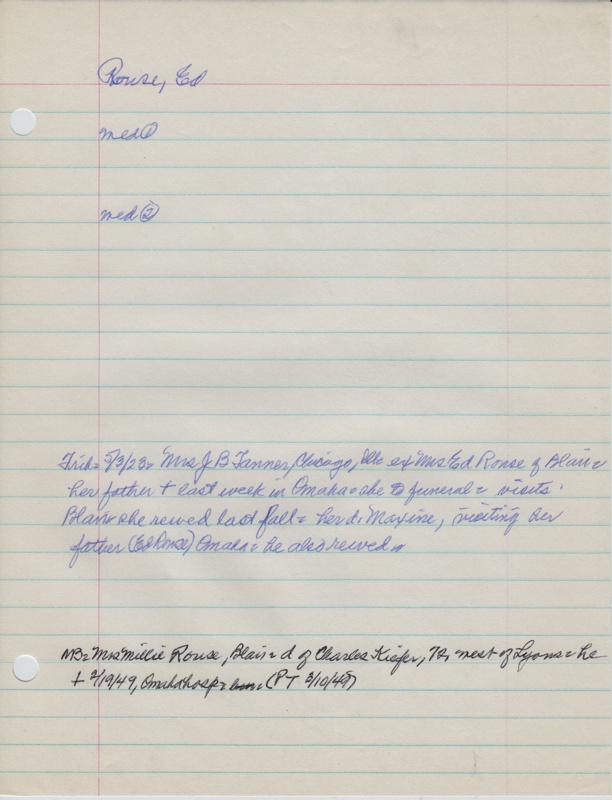 Rouse, Ed
med ①
med ②
Trib= 5/3/23= Mrs J B Tanner, Chicago, Ills ex Mrs Ed Rouse of Blair=
her father + last week in Omaha= she to funeral= visits
Blair= she rewed last fall= her d, Maxine, visiting her
father (Ed Rouse) Omaha= he also rewed
NB= Mrs Millie Rouse, Blair= d of Charles Kiefer, 72, west of Lyons= he
+ 2/19/49, Omaha hosp= (PT 3/10/49)